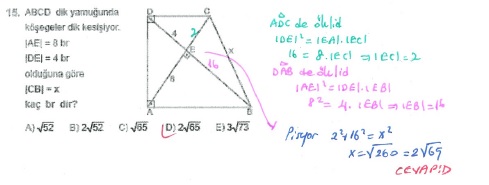 15. ABCD dik yamuğunda
köşegeler dik kesişiyor.
|AE| = 8 br
|DE| = 4 br
olduğuna göre
|CB| = x
kaç br dir?
D C
4 2
E x
8 16
A B
A) √52 B) 2√52 C) √65 D) 2√65 E) 3√73
ADC de öklid
|DE|² = |EA|.|EC|
16 = 8.|EC| ⇒ |EC| = 2
DAB de öklid
|AE|² = |DE|.|EB|
8² = 4.|EB| ⇒ |EB| = 16
Pisyor 2²+16² = x²
x = √260 = 2√65
CEVAP D